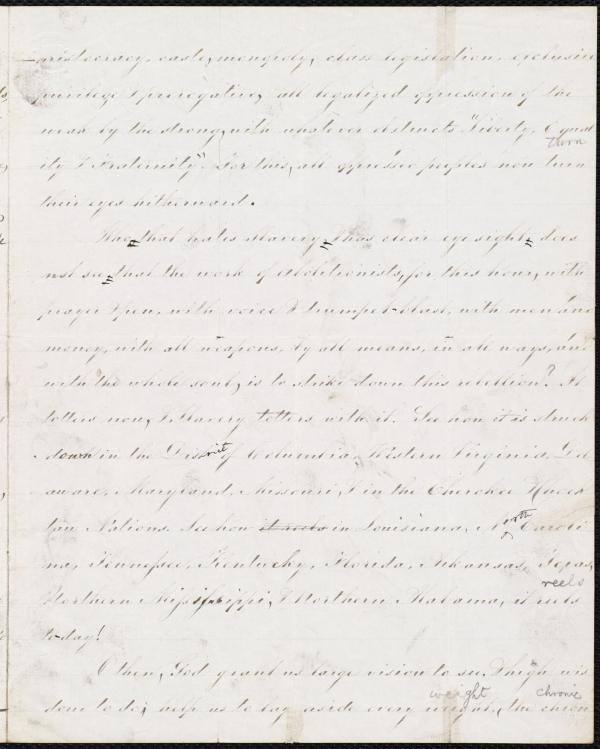 aristocracy, caste, mongrely, class legislation, exclusive
privilege & prerogative, all legalized oppression of the
weak by the strong, with whatever obstructs "Liberty, Equal
thorn
ity & Fraternity". For this, all oppressed peoples now turn
their eyes hitherward.
that hates slavery, has clear eye sight, does
not see, that the work of abolitionists, for this hour, with
prayer & pen, with voice & trumpet-blast, with men and
money, with all weapons, by all means, in all ways, and
with the whole soul, is to strike down this rebellion? It
totters now, & Slavery totters with it. See how it is struck
down in the District of Columbia, Western Virginia, Del
aware, Maryland, Missouri, & in the Cherokee & 
 Nations. See how it reels in Louisiana, North Caroli
na, Tennessee, Kentucky, Florida, Arkansas, Texas,
reels
Northern Mississippi, & Northern Alabama, it reels
to-day!
O then, God grant us large vision to see, & high wis
weight chronic
dom to do; help us to lay aside every weight, the chron